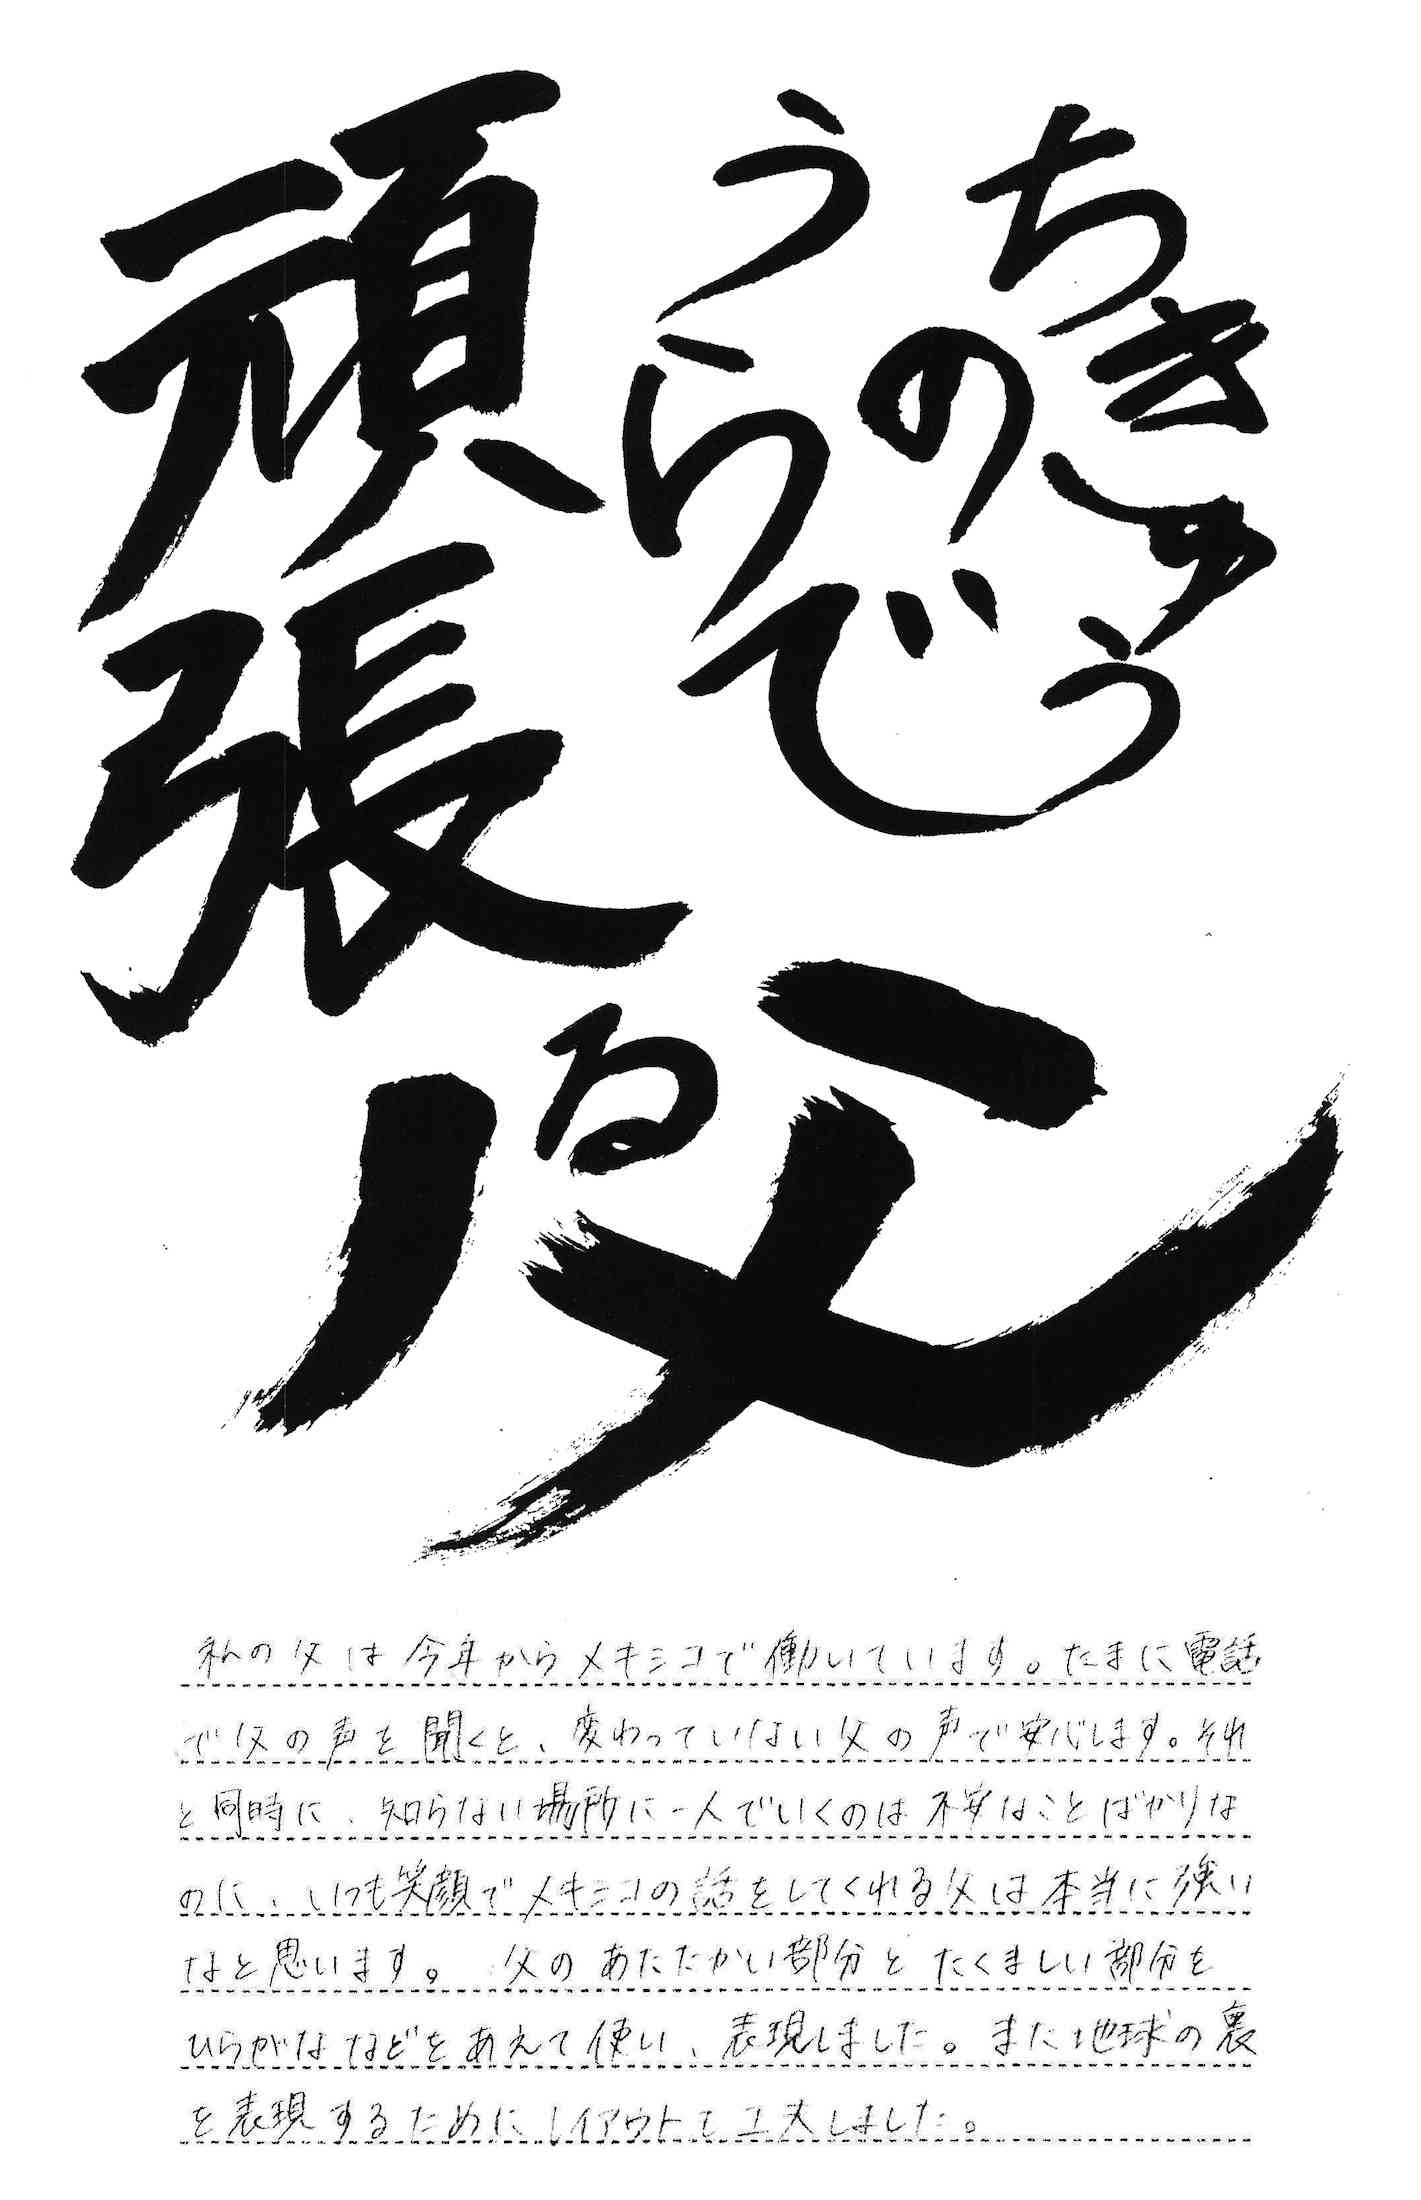 ちきゅう
のうらで
頑張る
父
私の父は今年からメキシコで働いています。たまに電話
で父の声を聞くと、変わっていない父の声で安心します。それ
と同時に、知らない場所に一人でいくのは不安なことばかりな
のに、いつも笑顔でメキシコの話をしてくれる父は本当に強い
なと思います。 父のあたたかい部分とたくましい部分を
ひらがななどをあえて使い、表現しました。また地球の裏
を表現するためにレイアウトを工夫しました。